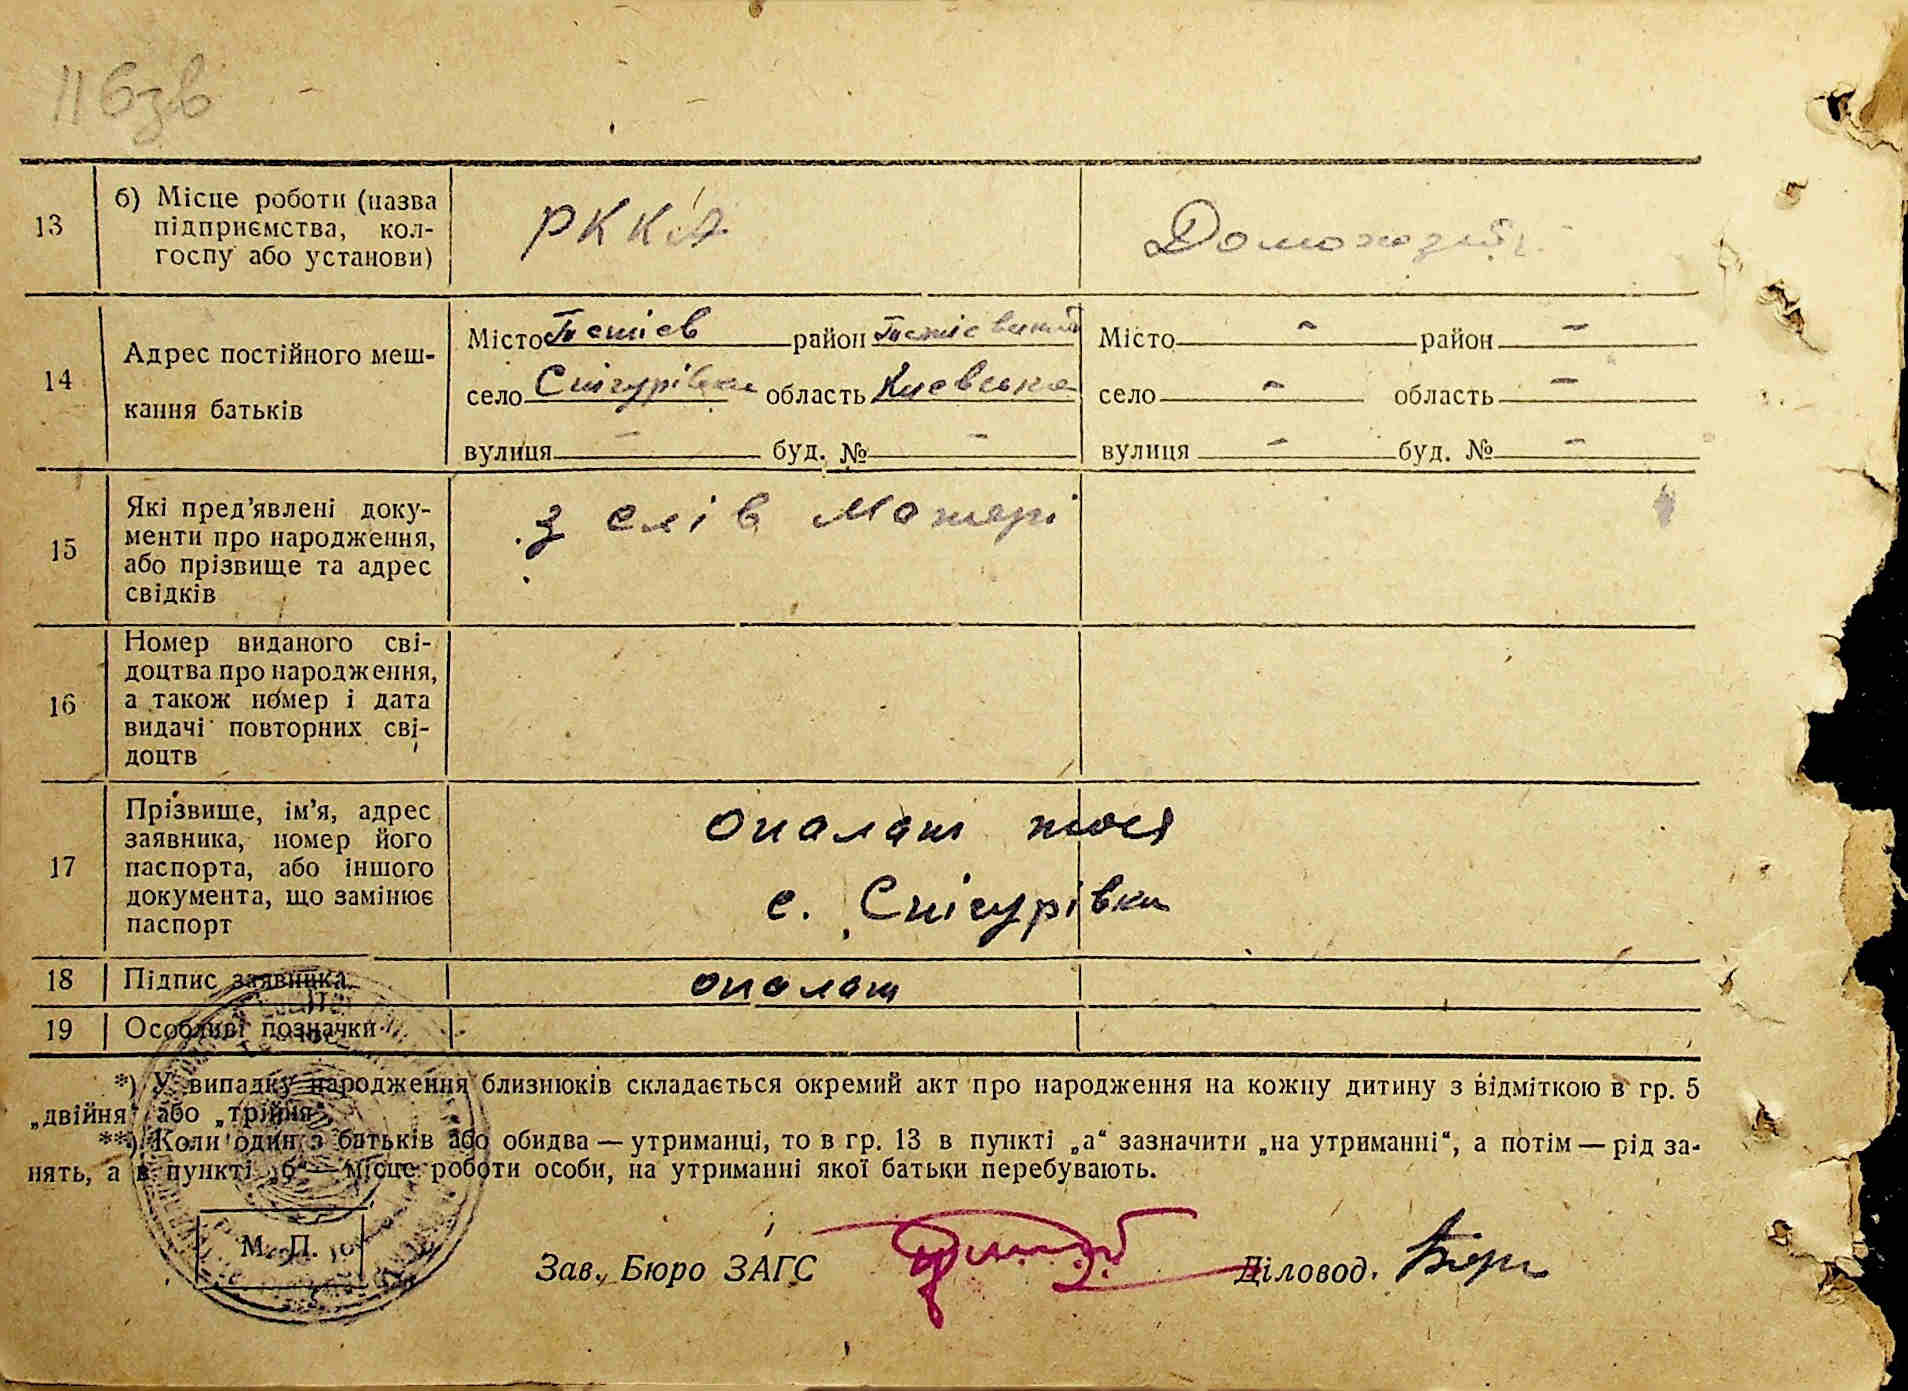 116зв
13 б) Місце роботи (назва підприємства, колгоспу або установи) РККА Домохозяй
14 Адрес постійного мешкання батьків
Місто Тетіев район Тетіевский Місто - район -
село Снігурівка область Киевська село - область -
вулиця - буд. № - вулиця - буд. № -
15 Які пред'явлені доку-
менти про народження,
або прізвище та адрес
свідків
з слів Матері
16 Номер виданого сві-
доцтва про народження,
а також номер і дата
видачі повторних сві-
доцтв
17 Прізвище, ім'я, адрес
заявника, номер його
паспорта, або іншого
документа, що замінює
паспорт
опалат тося
с. Снігурівка
18 Підпис заявника опалат
19 Особливі позначки
*) У випадку народження близнюків складається окремий акт про народження на кожну дитину з відміткою в гр. 5
„двійня“ або „трійня“.
**) Коли один з батьків або обидва — утриманці, то в гр. 13 в пункті „а“ зазначити „на утриманні“, а потім — рід за-
нять, а в пункті „б“ — місце роботи особи, на утриманні якої батьки перебувають.
М. П.
Зав. Бюро ЗАГС Діловод.